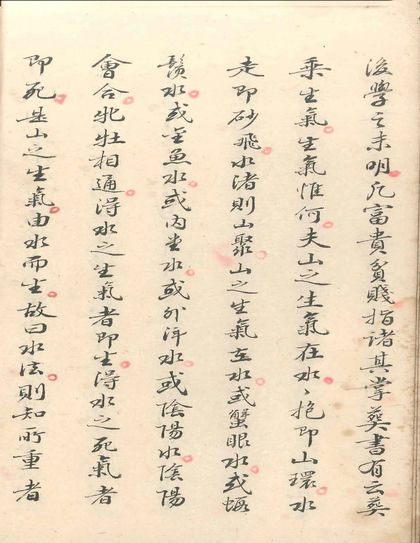 後學之未明凡富貴貧賤指諸其掌葬書有云葬
乘生氣生氣惟何夫山之生氣在水〻抱即山環水
走即砂飛水渚則山聚山之生氣在水或蟹眼水或蝦
鬚水或金魚水或內堂水或外洋水或陰陽水陰陽
會合牝牡相通淂水之生氣者即生淂水之死氣者
即死是山之生氣由水而生故曰水法則知所重者